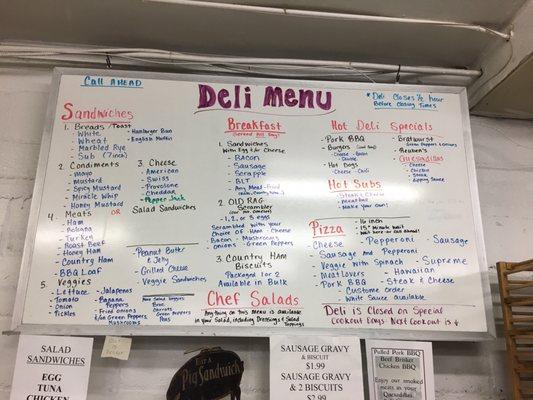 Call Ahead
Deli Menu
*Deli Closes 1/2 hour
Before Closing Times
Sandwiches
1. Breads / Toast
White
Wheat
Marbled Rye
Sub (7inch)
- Hamburger Bun
- English Muffin
2. Condiments
- mayo
- Mustard
- Spicy Mustard
- Miracle Whip
- Honey Mustard
3. Cheese
- American
- Swiss
- Provolone
- Cheddar
- Pepper Jack
4. Meats OR
- Ham
- Turkey
- Roast Beef
- Honey Ham
- Country Ham
- BBQ Loaf
Salad Sandwiches
5. Veggies
- Lettuce
- Tomato
- Onion
- Pickles
- Jalapenos
- Banana Peppers
- Fried Onions
Green Peppers
Mushrooms
- Peanut Butter
& Jelly
- Grilled Cheese
- Veggie Sandwiches
Breakfast
1. Sandwiches
With Egg & / or Cheese
- Bacon
- Sausage
- Scrapple
- BLT
2. Old Rag
Scrambler
- 1, 2, or 3 eggs
Scrambled with your
Choice of Ham - Cheese
Bacon - Mushrooms
Onions - Green Peppers
3. Country Ham
Biscuits
Packaged for 2
Available in Bulk
Chef Salads
Anything on this menu is available
in your Salad, including Dressings & Salad
Toppings
Hot Deli Specials
- Pork BBQ
- Burgers
- Hot Dogs
- Cheese - Chili
- Bratwurst
- Reuben's
- Quesadillas
- Cheese
- Chicken
- Steak
Hot Subs
- Steak & Cheese
- meatball
- Make your own!
Pizza
- 16 inch
- 15" Minute wait
- Cheese
- Pepperoni
- Sausage
- Sausage and Pepperoni
- Veggie with Spinach
- Supreme
- Meat Lovers
- Hawaiian
- Pork BBQ
- Steak & Cheese
- Custome Order
- White Sauce available
Deli is Closed on Special
Cookout Days. Next Cookout is
SALAD
SANDWICHES
EGG
TUNA
CHICKEN
EAT A
Pig Sandwich
SAUSAGE GRAVY
& BISCUIT
$1.99
SAUSAGE GRAVY
& 2 BISCUITS
$2.99
Pulled Pork BBQ
Beef Brisket
Chicken BBQ
Enjoy our smoked
meats in your
Quesadillas